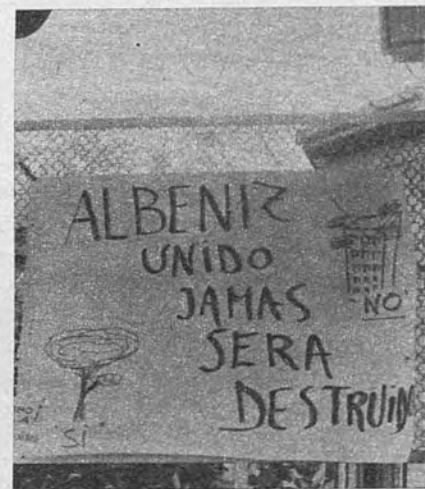 ALBENIZ
UNIDO
JAMAS
SERA
DESTRUIDO
"NO"
"SI"